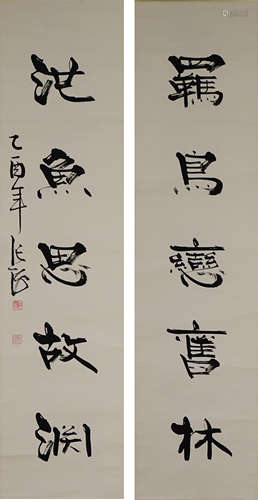 羈鳥戀舊林
池魚思故淵
乙酉年张海